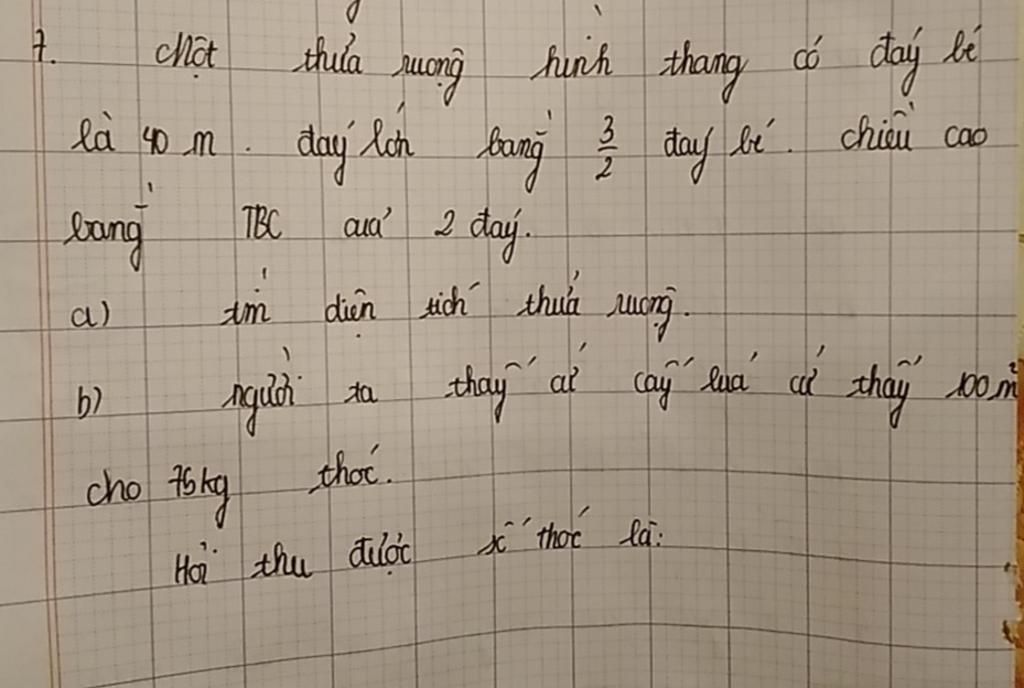 7. Một thửa ruộng hình thang có đáy bé
là 40 m. đáy lớn bằng 3/2 đáy bé. chiều cao
bằng TBC của 2 đáy.
a) tìm diện tích thửa ruộng.
b) người ta thấy cứ cấy lúa cứ thấy 100 m²
cho 75kg thóc.
Hỏi thu được số thóc là: